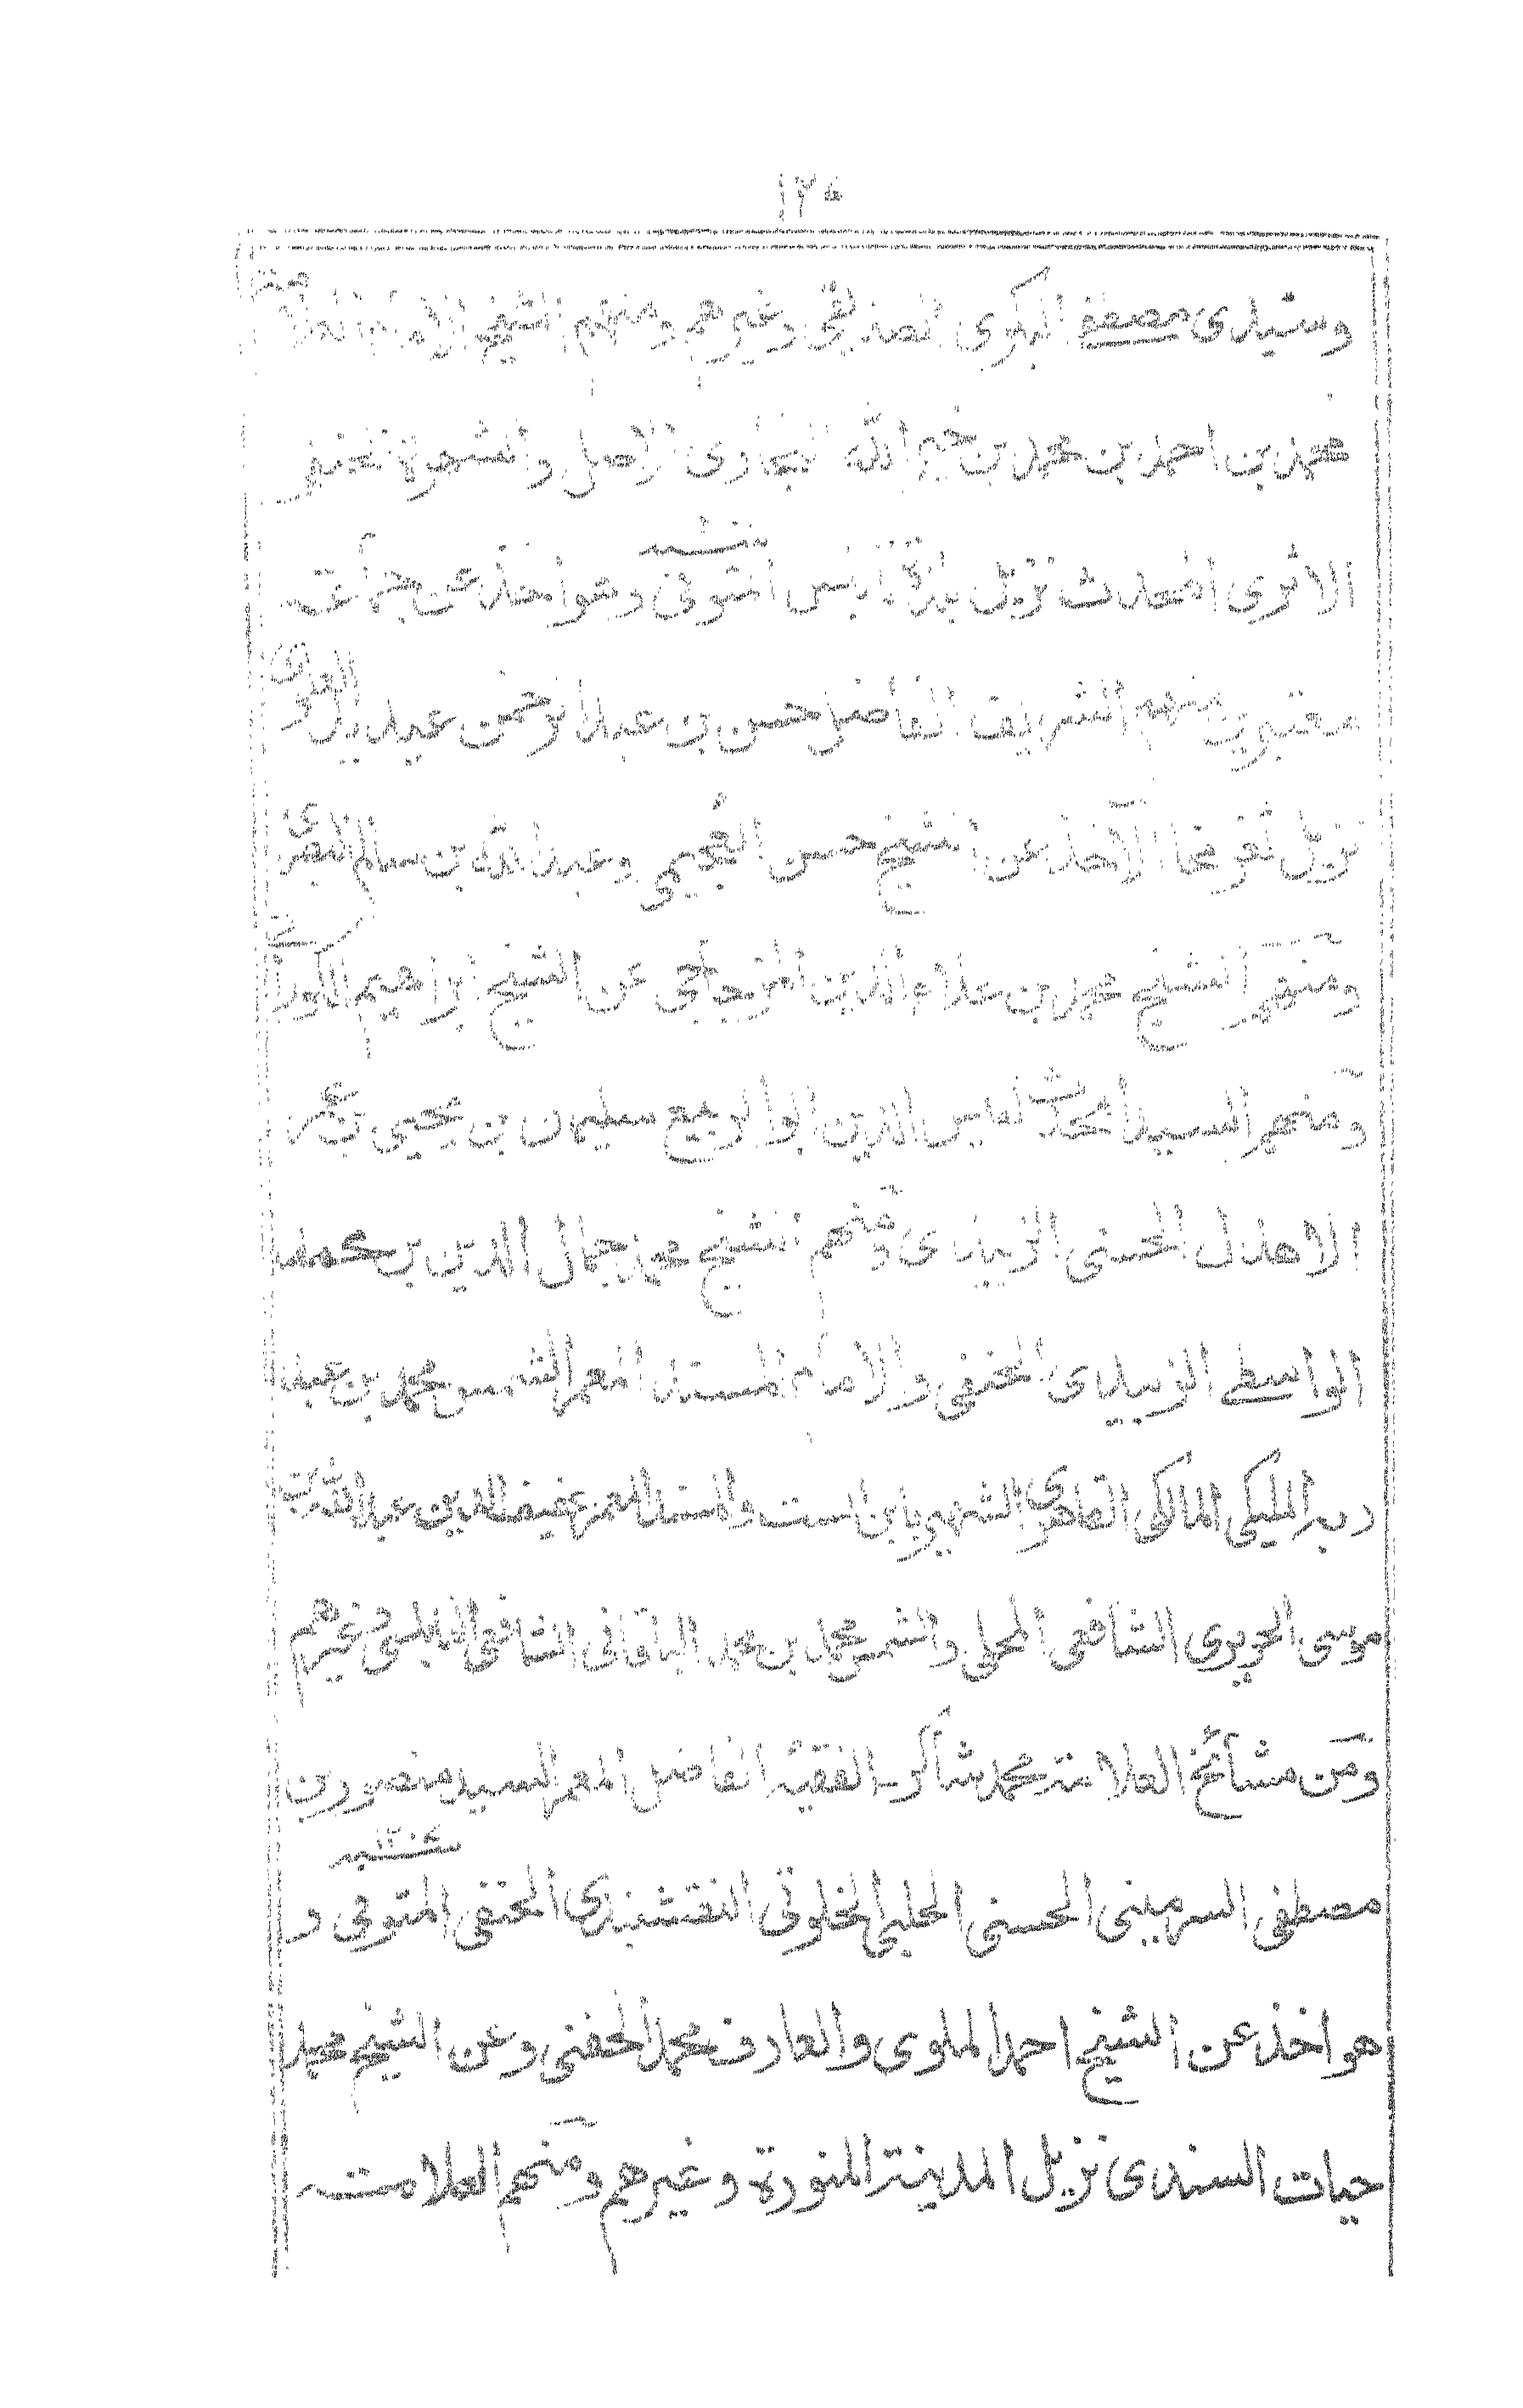 وسيدى مصطفى البكرى الصديقى وغيرهم ومنهم الشيخ الامام العلامة
محمد بن احمد بن محمد بن خير الله البخارى الاصل والشهرة الحنفى
الاثرى المحدث نزيل نابلس المتوفى وهو اخذ عن جماعة
معتبرين منهم الشريف الفاضل حسن بن عبد الرحمن عيديد العلوى
نزيل ثغر مخا الآخذ عن الشيخ حسن العجيمى وعبد الله بن سالم البصرى
ومنهم الشيخ محمد بن علاء الدين المزجاجى عن الشيخ ابراهيم الكورانى
ومنهم السيد المحدث نفيس الدين ابو الربيع سليمان بن يحيى بن عمر
الاهدل الحسنى الزبيدى ومنهم الشيخ محمد جمال الدين بن محمد
الواسطى الزبيدى الحنفى والامام المسند المعمر الشمس محمد بن عبد
ربه المليكى المالكى القاهرى الشهير بابن الست والمسند المعمر عفيف الدين عبد الله بن
موسى الحريرى الشافعى المحلى والشمس محمد بن محمد الباقانى الشافعى النابلسى وغيرهم
ومن مشائخ العلامة محمد شاكر الفقيه الفاضل المعمر السيد منصور بن
مصطفى السرمينى الحسنى الحلبى الخلوتى النقشبندى الحنفى المتوفى و
هو اخذ عن الشيخ احمد الملوى والعارف محمد الحفنى وعن الشيخ محمد
حيات السندى نزيل المدينة المنورة وغيرهم ومنهم العلامة